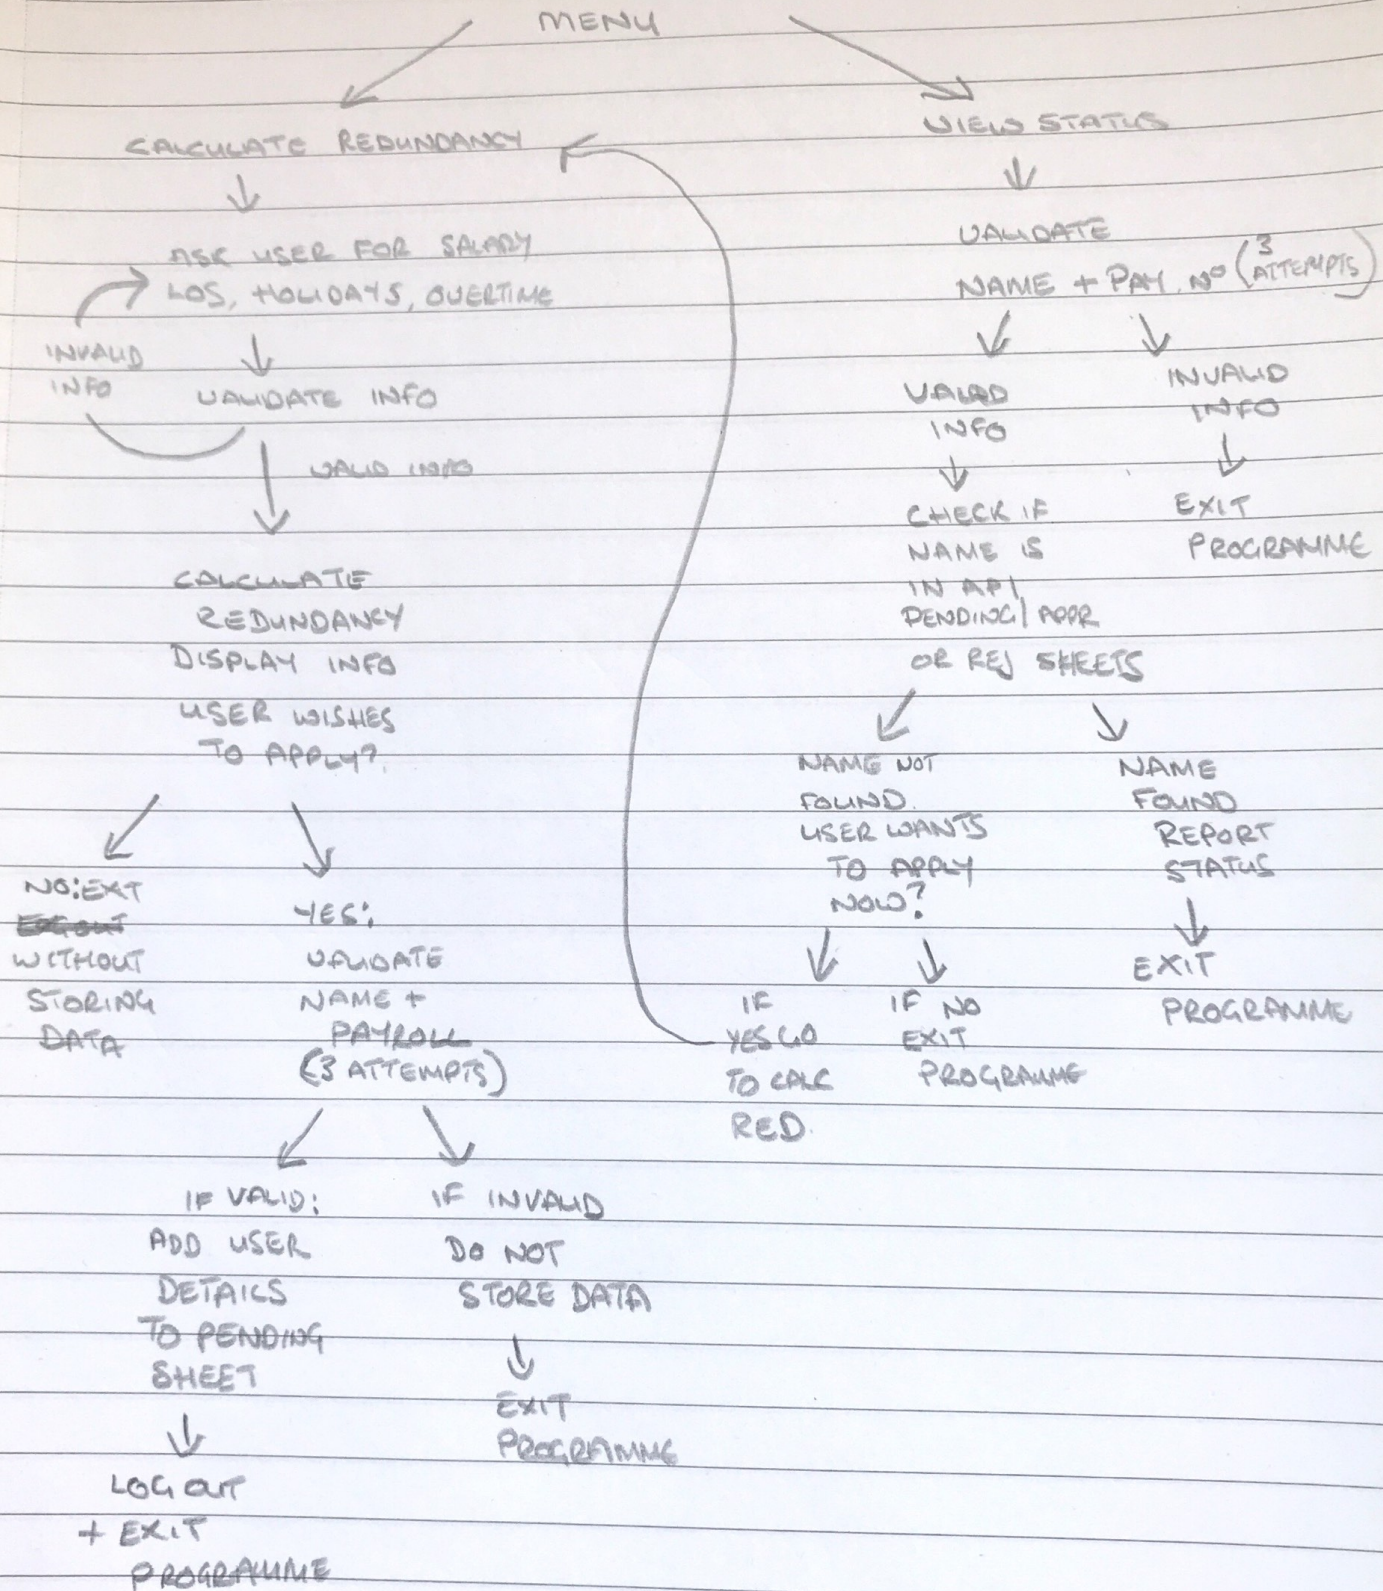 MENU
CALCULATE REDUNDANCY
ASK USER FOR SALARY
LOS, HOLIDAYS, OVERTIME
INVALID
INFO
VALIDATE INFO
VALID INFO
CALCULATE
REDUNDANCY
DISPLAY INFO
USER WISHES
TO APPLY?
NO: EXIT
WITHOUT
STORING
DATA
YES:
VALIDATE
NAME +
PAYROLL
(3 ATTEMPTS)
IF VALID:
ADD USER
DETAILS
TO PENDING
SHEET
LOG OUT
+ EXIT
PROGRAMME
IF INVALID
DO NOT
STORE DATA
EXIT
PROGRAMME
VIEW STATUS
VALIDATE
NAME + PAY. NO (3 ATTEMPTS)
VALID
INFO
CHECK IF
NAME IS
IN API
PENDING/APPR
OR REJ SHEETS
NAME NOT
FOUND.
USER WANTS
TO APPLY
NOW?
IF
YES GO
TO CALC
RED.
IF NO
EXIT
PROGRAMME
NAME
FOUND
REPORT
STATUS
EXIT
PROGRAMME
INVALID
INFO
EXIT
PROGRAMME